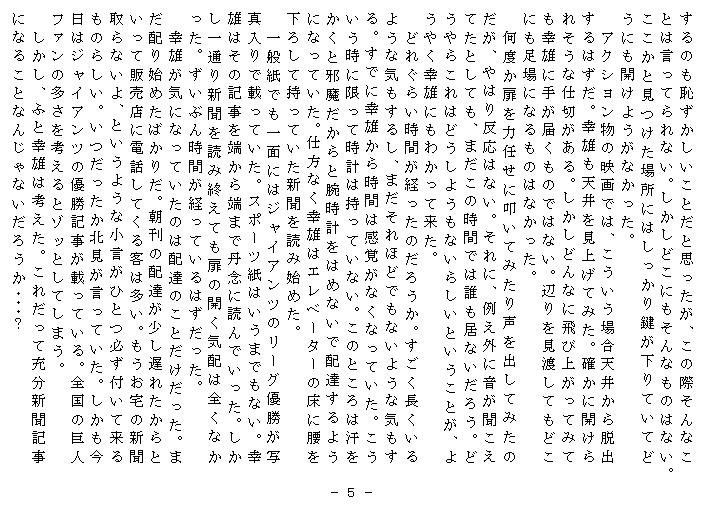 するのも恥ずかしいことだと思ったが、この際そんなこ
とは言ってられない。しかしどこにもそんなものはない。
ここかと見つけた場所にはしっかり鍵が下りていてど
うにも開けようがなかった。
　アクション物の映画では、こういう場合天井から脱出
するはずだ。幸雄も天井を見上げてみた。確かに開けら
れそうな仕切がある。しかしどんなに飛び上がってみて
も幸雄に手が届くものではない。辺りを見渡してもどこ
にも足場になるものはなかった。
　何度か扉を力任せに叩いてみたり声を出してみたの
だが、やはり反応はない。それに、例え外に音が聞こえ
てたとしても、まだこの時間では誰も居ないだろう。ど
うやらこれはどうしようもないらしいということが、よ
うやく幸雄にもわかって来た。
　どれぐらい時間が経ったのだろうか。すごく長くいる
ような気もするし、まだそれほどでもないような気もす
る。すでに幸雄から時間は感覚がなくなっていた。こう
いう時に限って時計は持っていない。このところは汗を
かくと邪魔だからと腕時計をはめないで配達するよう
になっていた。仕方なく幸雄はエレベーターの床に腰を
下ろして持っていた新聞を読み始めた。
　一般紙でも一面にはジャイアンツのリーグ優勝が写
真入りで載っていた。スポーツ紙はいうまでもない。幸
雄はその記事を端から端まで丹念に読んでいった。しか
し一通り新聞を読み終えても扉の開く気配は全くなか
った。ずいぶん時間が経っているはずだった。
　幸雄が気になっていたのは配達のことだけだった。ま
だ配り始めたばかりだ。朝刊の配達が少し遅れたからと
いって販売店に電話してくる客は多い。もうお宅の新聞
取らないよ、というような小言がひとつ必ず付いて来る
ものらしい。いつだったか北見が言っていた。しかも今
日はジャイアンツの優勝記事が載っている。全国の巨人
ファンの多さを考えるとゾッとしてしまう。
　しかし、ふと幸雄は考えた。これだって充分新聞記事
になることなんじゃないだろうか・・・？
- 5 -